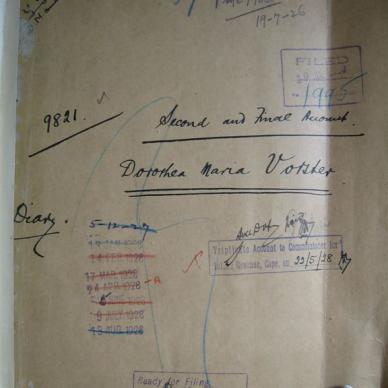 19-7-26
FILED
1995
9821.
Second and Final Account.
Dorothea Maria Vorster
Diary.
5-12-27
14 FEB 1928
17 MAR 1928
24 APR 1928
1928
9 JULY 1928
13 AUG 1928
Triplicate Account to Commissioner for
Revenue, Cape, on 22/5/28
Ready for Filing